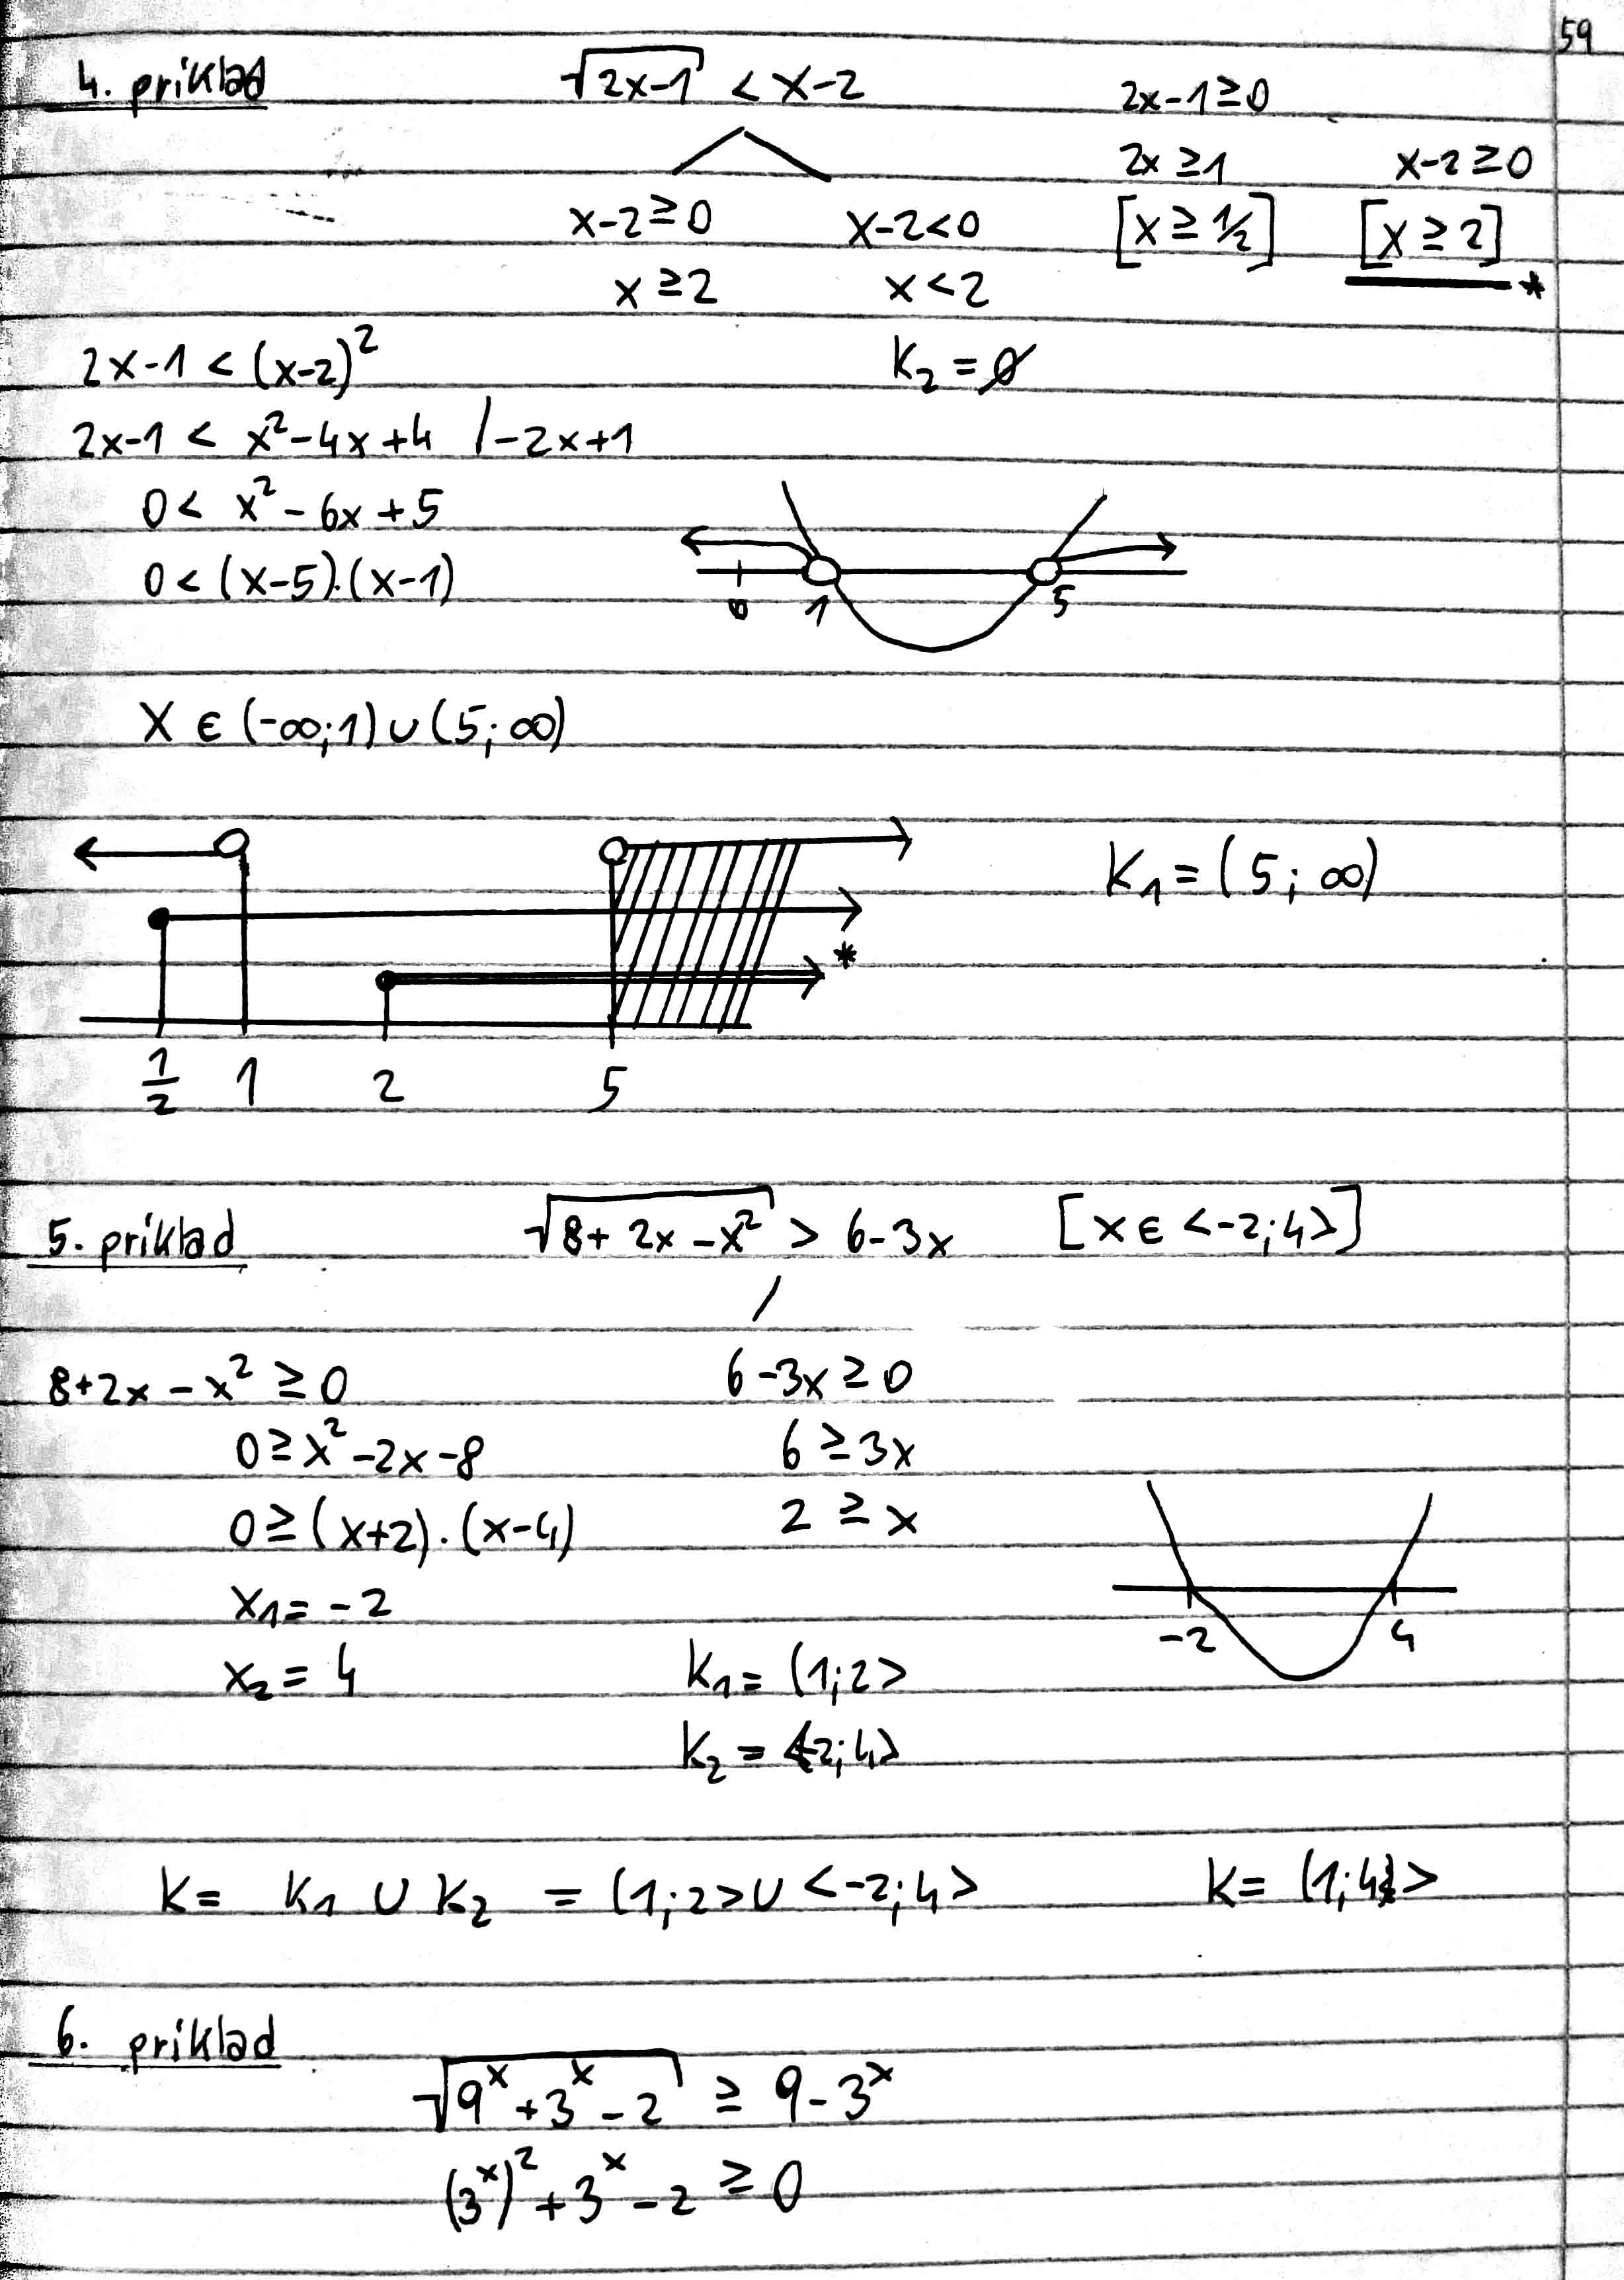 59
4. priklad √(2x-1) < x-2 2x-1≥0
2x ≥1 x-2≥0
x-2≥0 x-2<0 [x ≥ 1/2] [x ≥ 2]
x ≥2 x<2 *
2x-1 < (x-2)² K₂ = ∅
2x-1 < x²-4x+4 /-2x+1
0 < x²-6x+5
0 < (x-5).(x-1)
0 1 5
X ∈ (-∞;1) ∪ (5;∞)
K₁ = (5; ∞)
*
1/2 1 2 5
5. priklad √(8+2x-x²) > 6-3x [x ∈ <-2;4>]
8+2x-x² ≥0 6-3x ≥ 0
0≥x²-2x-8 6 ≥3x
0≥(x+2).(x-4) 2 ≥ x
x₁= -2
-2 4
x₂= 4 K₁= (1;2>
K₂ = (2;4>
K= K₁ ∪ K₂ = (1;2>∪<-2;4> K= (1;4>
6. priklad
√(9ˣ+3ˣ-2) ≥ 9-3ˣ
(3ˣ)²+3ˣ-2 ≥ 0